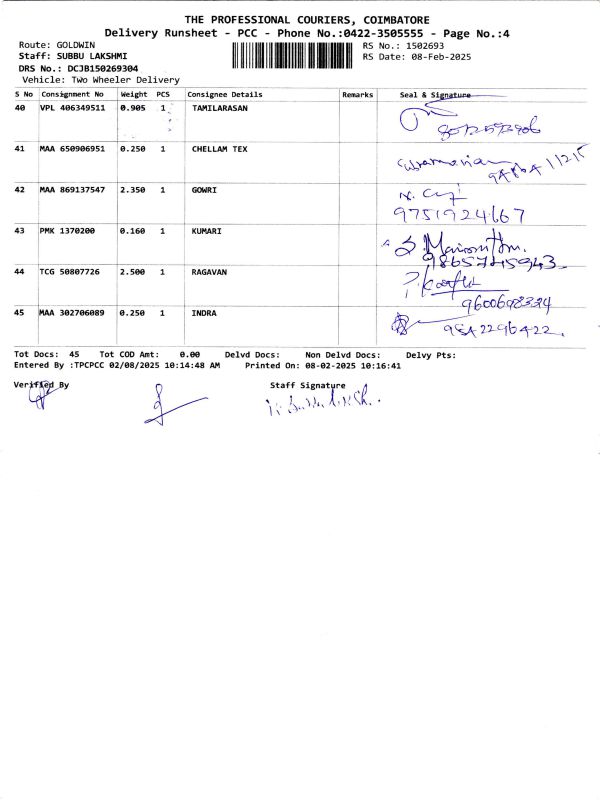 THE PROFESSIONAL COURIERS, COIMBATORE
Delivery Runsheet - PCC - Phone No.:0422-3505555 - Page No.:4
Route: GOLDWIN RS No.: 1502693
Staff: SUBBU LAKSHMI RS Date: 08-Feb-2025
DRS No.: DCJB150269304
Vehicle: Two Wheeler Delivery
S No Consignment No Weight PCS Consignee Details Remarks Seal & Signature
40 VPL 406349511 0.905 1 TAMILARASAN
41 MAA 650906951 0.250 1 CHELLAM TEX
42 MAA 869137547 2.350 1 GOWRI
9751924667
43 PMK 1370200 0.160 1 KUMARI
9865745943
44 TCG 50807726 2.500 1 RAGAVAN
9600698334
45 MAA 302706089 0.250 1 INDRA
9842296422.
Tot Docs: 45 Tot COD Amt: 0.00 Delvd Docs: Non Delvd Docs: Delvy Pts:
Entered By :TPCPCC 02/08/2025 10:14:48 AM Printed On: 08-02-2025 10:16:41
Verified By Staff Signature